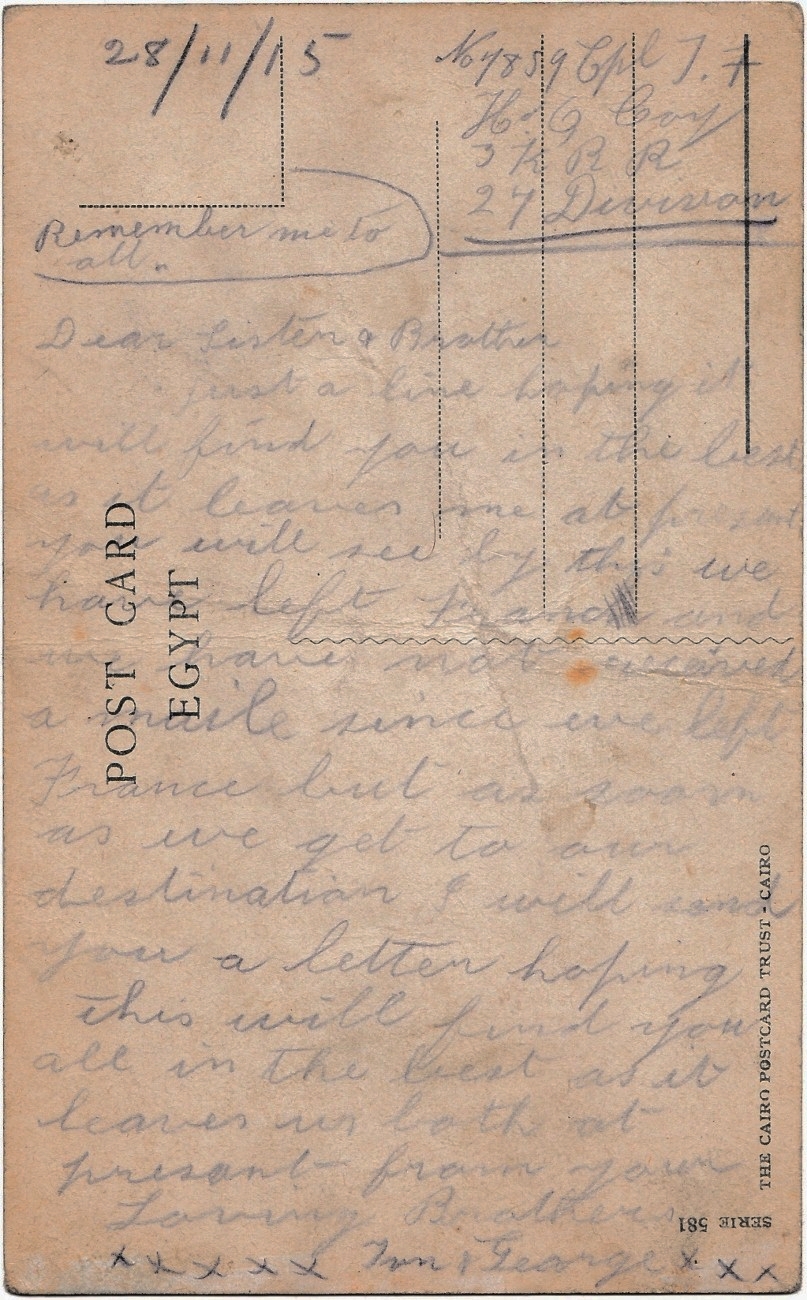 28/11/15
No 7859 Cpl J. F
H. Q Coy
3 K R R
27 Division
Remember me to
all.
Dear Sister & Brother
just a line hoping it
will find you in the best
as it leaves me at present
you will see by this we
have left France and
we have not received
a maile since we left
France but as soon
as we get to our
destination I will send
you a letter hoping
this will find you
all in the best as it
leaves us both at
presant from your
Loving Brothers
x x x x x & George x x x
POST CARD
EGYPT
THE CAIRO POSTCARD TRUST - CAIRO
SERIE 581